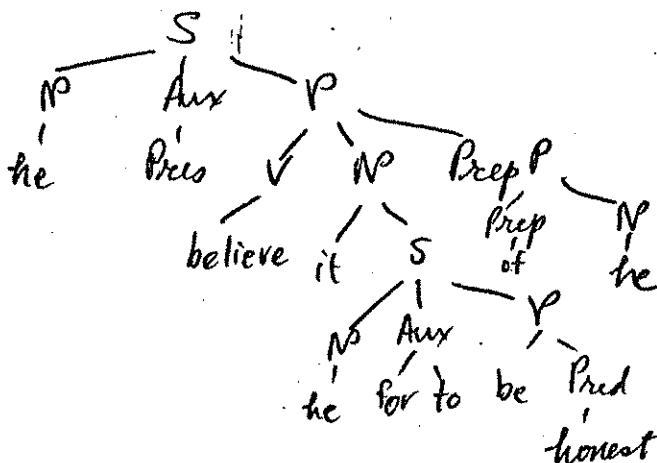 S
NP Aux VP
he Pres V NP Prep P
believe it S Prep NP
of he
NP Aux VP
he for to be Pred
honest